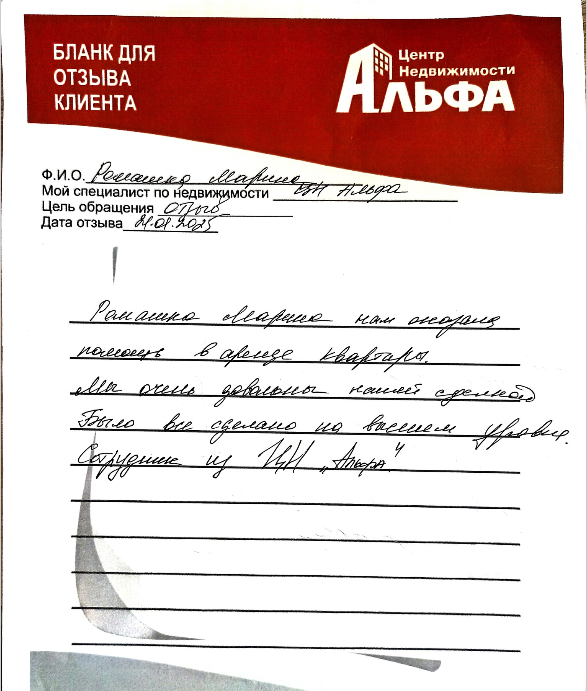 БЛАНК ДЛЯ
ОТЗЫВА
КЛИЕНТА
Центр
Недвижимости
АЛЬФА
Ф.И.О. Ромашко Марина
Мой специалист по недвижимости ЦН Альфа
Цель обращения отзыв
Дата отзыва 21.01.2025
Ромашко Марина нам оказала
помощь в аренде квартиры.
Мы очень довольны нашей сделкой
Было все сделано на высшем уровне.
Сотрудник из ЦН „Альфа"